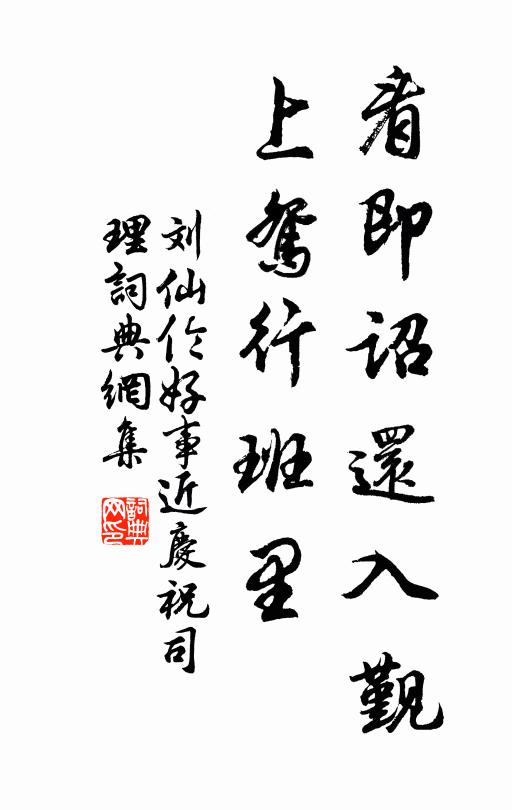 看即詔還入覲
上鴛行班里
刘仙伦好事近慶祝司
理詞典網集
詞典网印